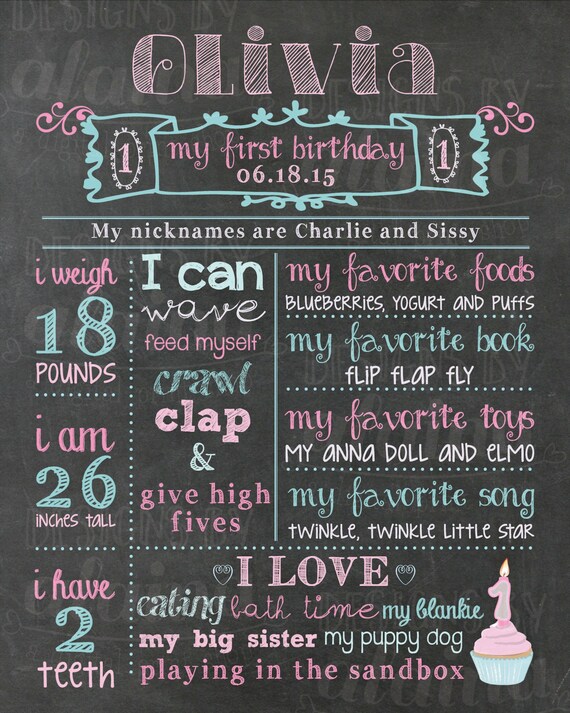 Olivia
1 my first birthday 1
06.18.15
My nicknames are Charlie and Sissy
i weigh
18
POUNDS
i am
26
inches tall
i have
2
teeth
I can
wave
feed myself
crawl
clap
&
give high
fives
my favorite foods
BLUEBERRIES, YOGURT AND PUFFS
my favorite book
FLIP FLAP FLY
my favorite toys
MY ANNA DOLL AND ELMO
my favorite song
TWINKLE, TWINKLE LITTLE STAR
I LOVE
eating bath time my blankie
my big sister my puppy dog
playing in the sandbox
1
DESIGNS BY
alaina